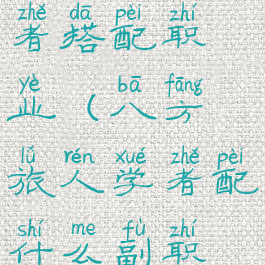 zhě dā pèi zhí
者搭配职
yè bā fāng
业（八方
lǚ rén xué zhě pèi
旅人学者配
shí me fù zhí
什么副职